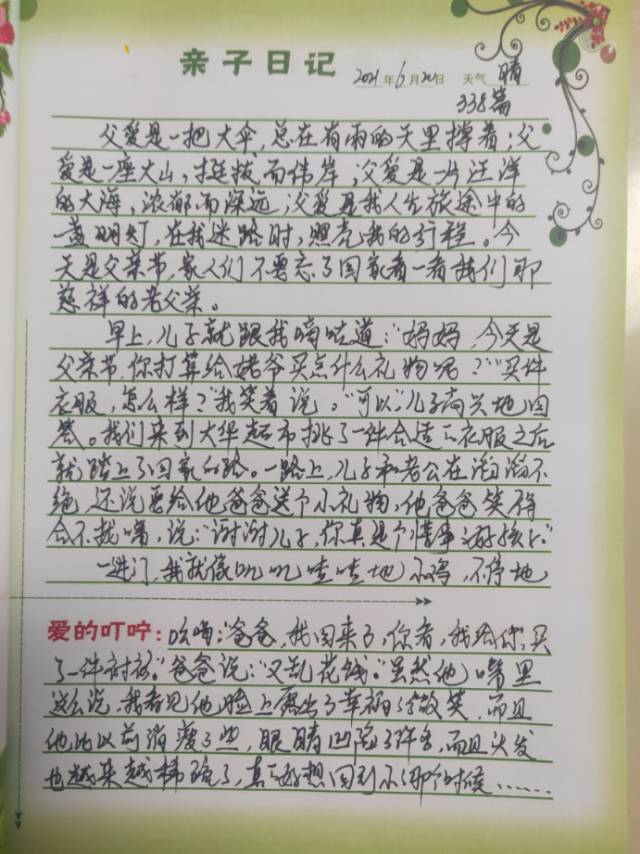 亲子日记 2021年6月20日 天气 晴
338篇
父爱是一把大伞,总在有雨的天里撑着;父
爱是一座大山,挺拔而伟岸;父爱是一片汪洋
的大海,浓郁而深远;父爱是我人生旅途中的
一盏明灯,在我迷路时,照亮我的行程。今
天是父亲节,家人们不要忘了回家看一看我们那
慈祥的老父亲。
早上,儿子就跟我嘀咕道:“妈妈,今天是
父亲节,你打算给姥爷买点什么礼物呢?”“买件
衣服,怎么样?”我笑着说。“可以”,儿子高兴地回
答。我们来到大华超市挑了一件合适的衣服之后
就踏上了回家的路。一路上,儿子和老公在滔滔不
绝,还说要给他爸爸送个小礼物,他爸爸笑得
合不拢嘴,说:“谢谢儿子,你真是个懂事的好孩子。”
一进门,我就像叽叽喳喳地小鸡,不停地
爱的叮咛:吆喝:“爸爸,我回来了,你看,我给你买
了一件衬衫。”爸爸说:“又乱花钱。”虽然他嘴里
这么说,我看见他脸上露出了幸福的微笑,而且
他比以前消瘦了些,眼睛凹陷了许多,而且头发
也越来越稀疏了,真的好想回到小的那个时候……